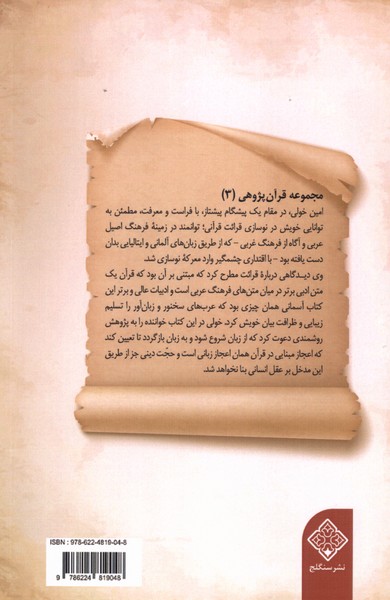 مجموعه قرآن‌پژوهی (۳)
امین خولی، در مقام یک پیشگام پیشتاز، با فراست و معرفت، مطمئن به
توانایی خویش در نوسازی قرائت قرآنی؛ توانمند در زمینهٔ فرهنگ اصیل
عربی و آگاه از فرهنگ غربی – که از طریق زبان‌های آلمانی و ایتالیایی بدان
دست یافته بود – با اقتداری چشمگیر وارد معرکهٔ نوسازی شد.
وی دیدگاهی دربارهٔ قرائت مطرح کرد که مبتنی بر آن بود که قرآن یک
متن ادبی برتر در میان متن‌های فرهنگ عربی است و ادبیات عالی و برتر این
کتاب آسمانی همان چیزی بود که عرب‌های سخنور و زبان‌آور را تسلیم
زیبایی و ظرافت بیان خویش کرد. خولی در این کتاب خواننده را به پژوهش
روشمندی دعوت کرد که از زبان شروع شود و به زبان بازگردد تا تعیین کند
که اعجاز مبنایی در قرآن همان اعجاز زبانی است و حجّت دینی جز از طریق
این مدخل بر عقل انسانی بنا نخواهد شد.
ISBN : 978-622-4819-04-8
9 786224 819048
نشر سنگلج